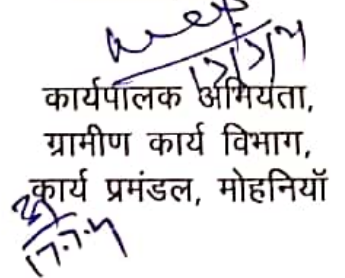 कार्यपालक अभियंता,
ग्रामीण कार्य विभाग,
कार्य प्रमंडल, मोहनियाँ
17.7.